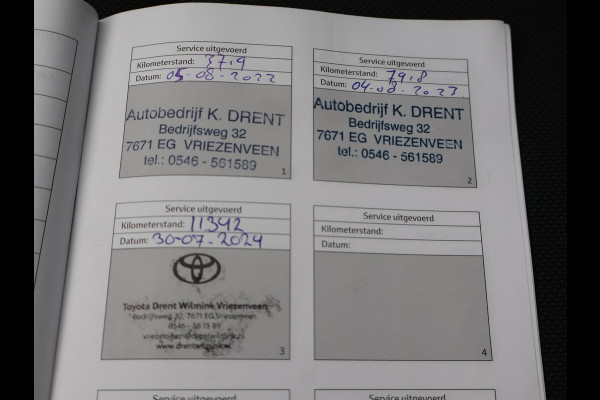 Service uitgevoerd
Kilometerstand: 37.9
Datum: 05-08-2022
Autobedrijf K. DRENT
Bedrijfsweg 32
7671 EG VRIEZENVEEN
tel.: 0546 - 561589
1
Service uitgevoerd
Kilometerstand: 79.8
Datum: 04-08-2023
Autobedrijf K. DRENT
Bedrijfsweg 32
7671 EG VRIEZENVEEN
tel.: 0546 - 561589
2
Service uitgevoerd
Kilometerstand: 11342
Datum: 30-07-2024
Toyota Drent Wilmink Vriezenveen
Bedrijfsweg 32, 7671 EG Vriezenveen
0546 - 56 15 89
www.drentwilmink.nl
3
Service uitgevoerd
Kilometerstand:
Datum:
4
Service uitgevoerd
Service uitgevoerd